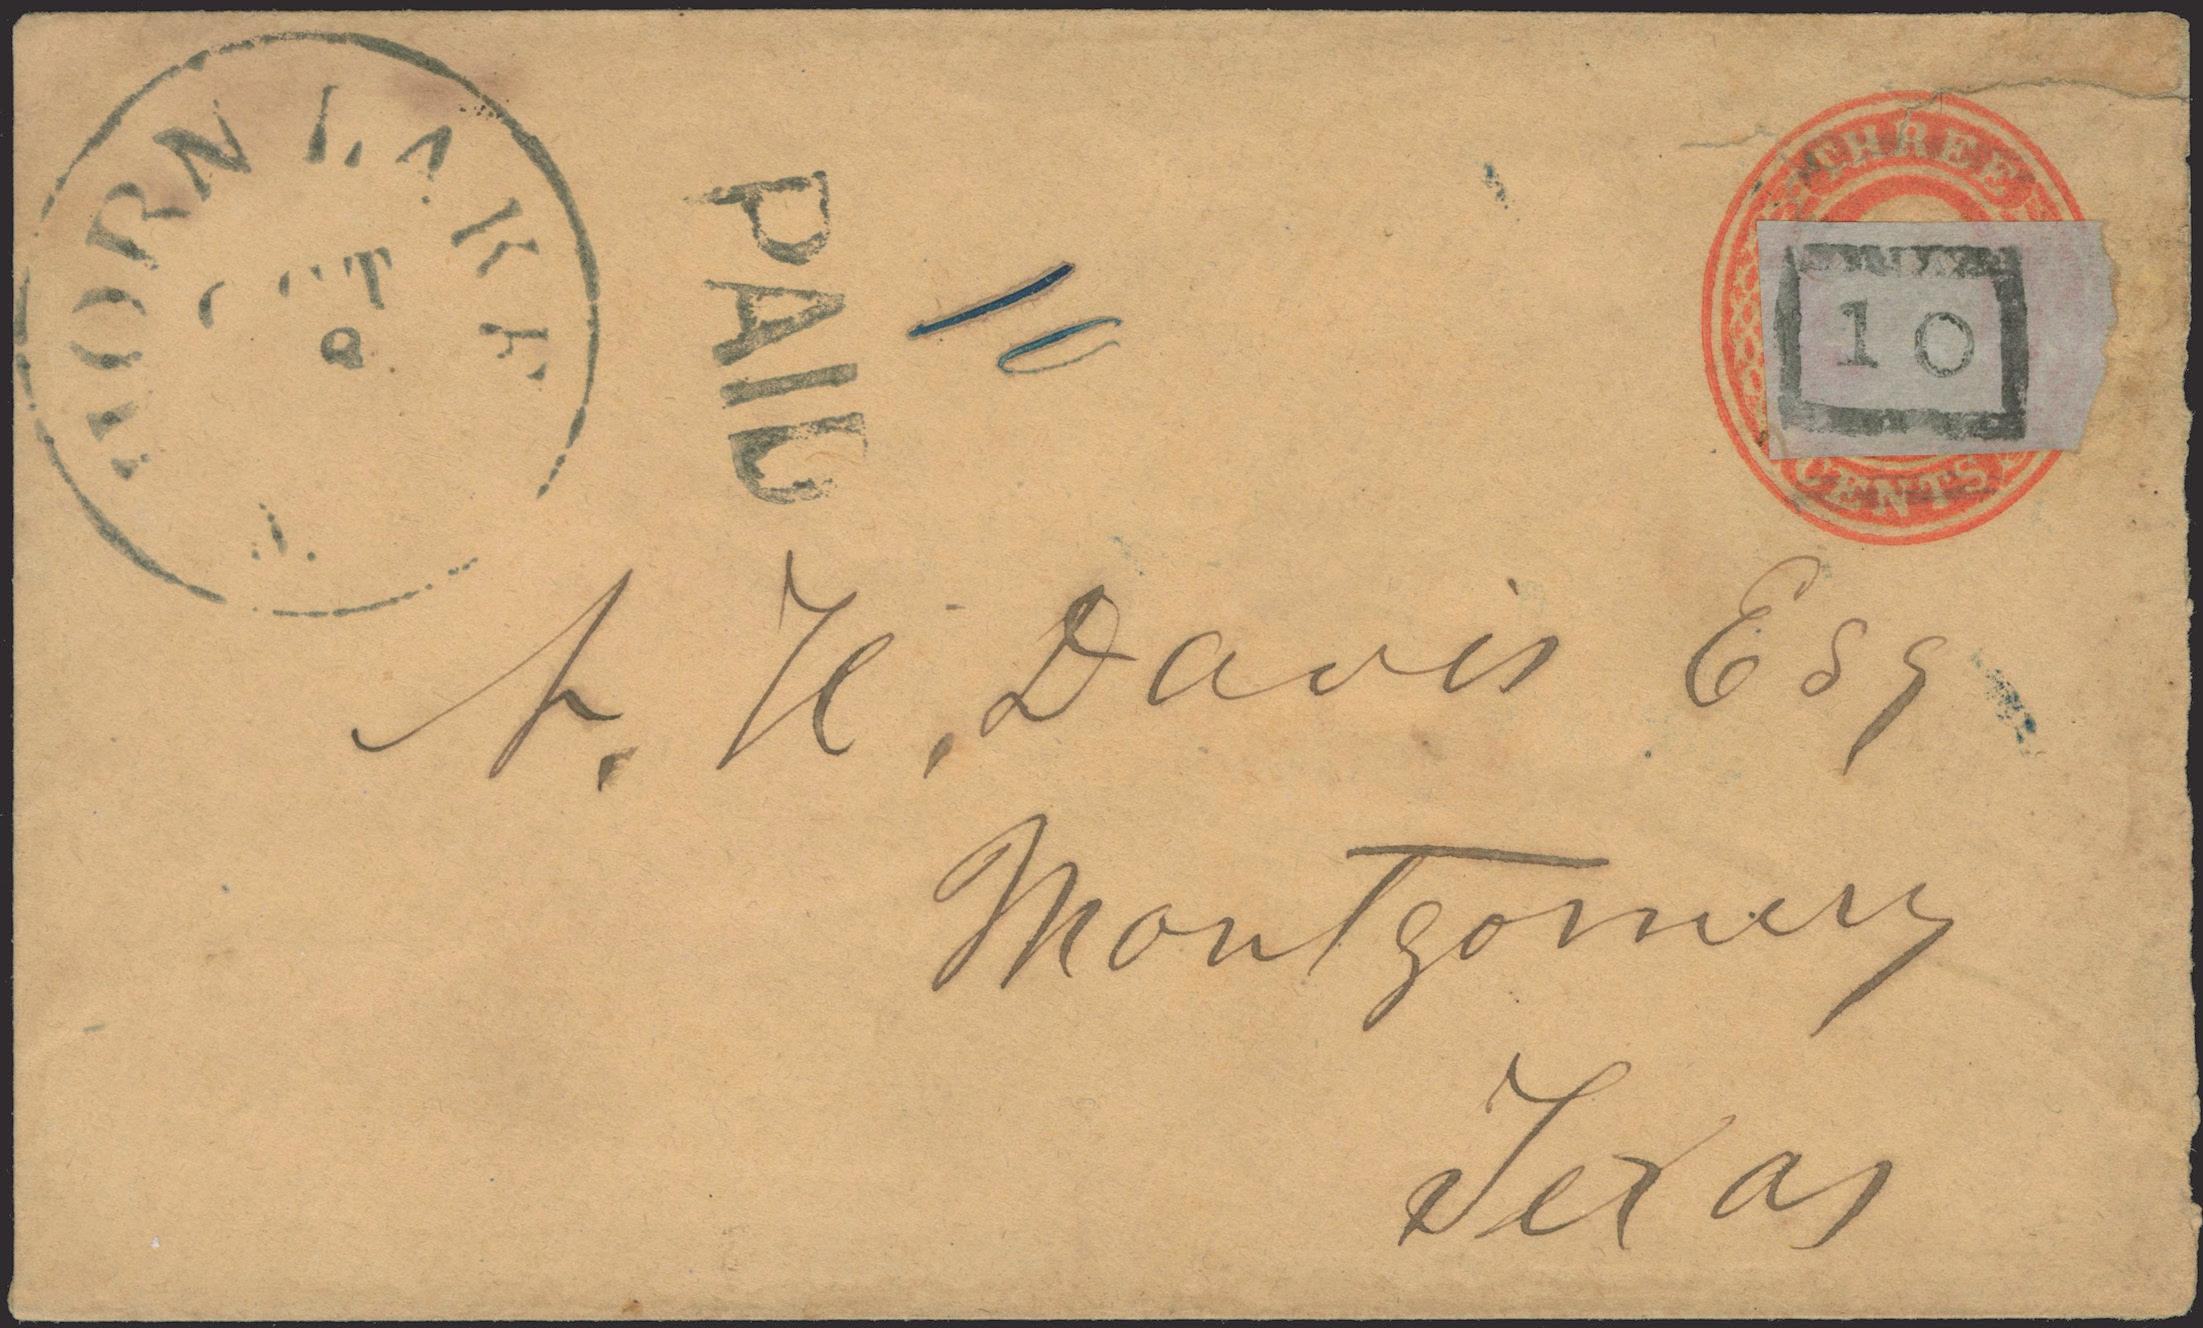 HORN LAKE
OCT
8
PAID
10
THREE
10
CENTS
A. H. Davis Esq
Montgomery
Texas